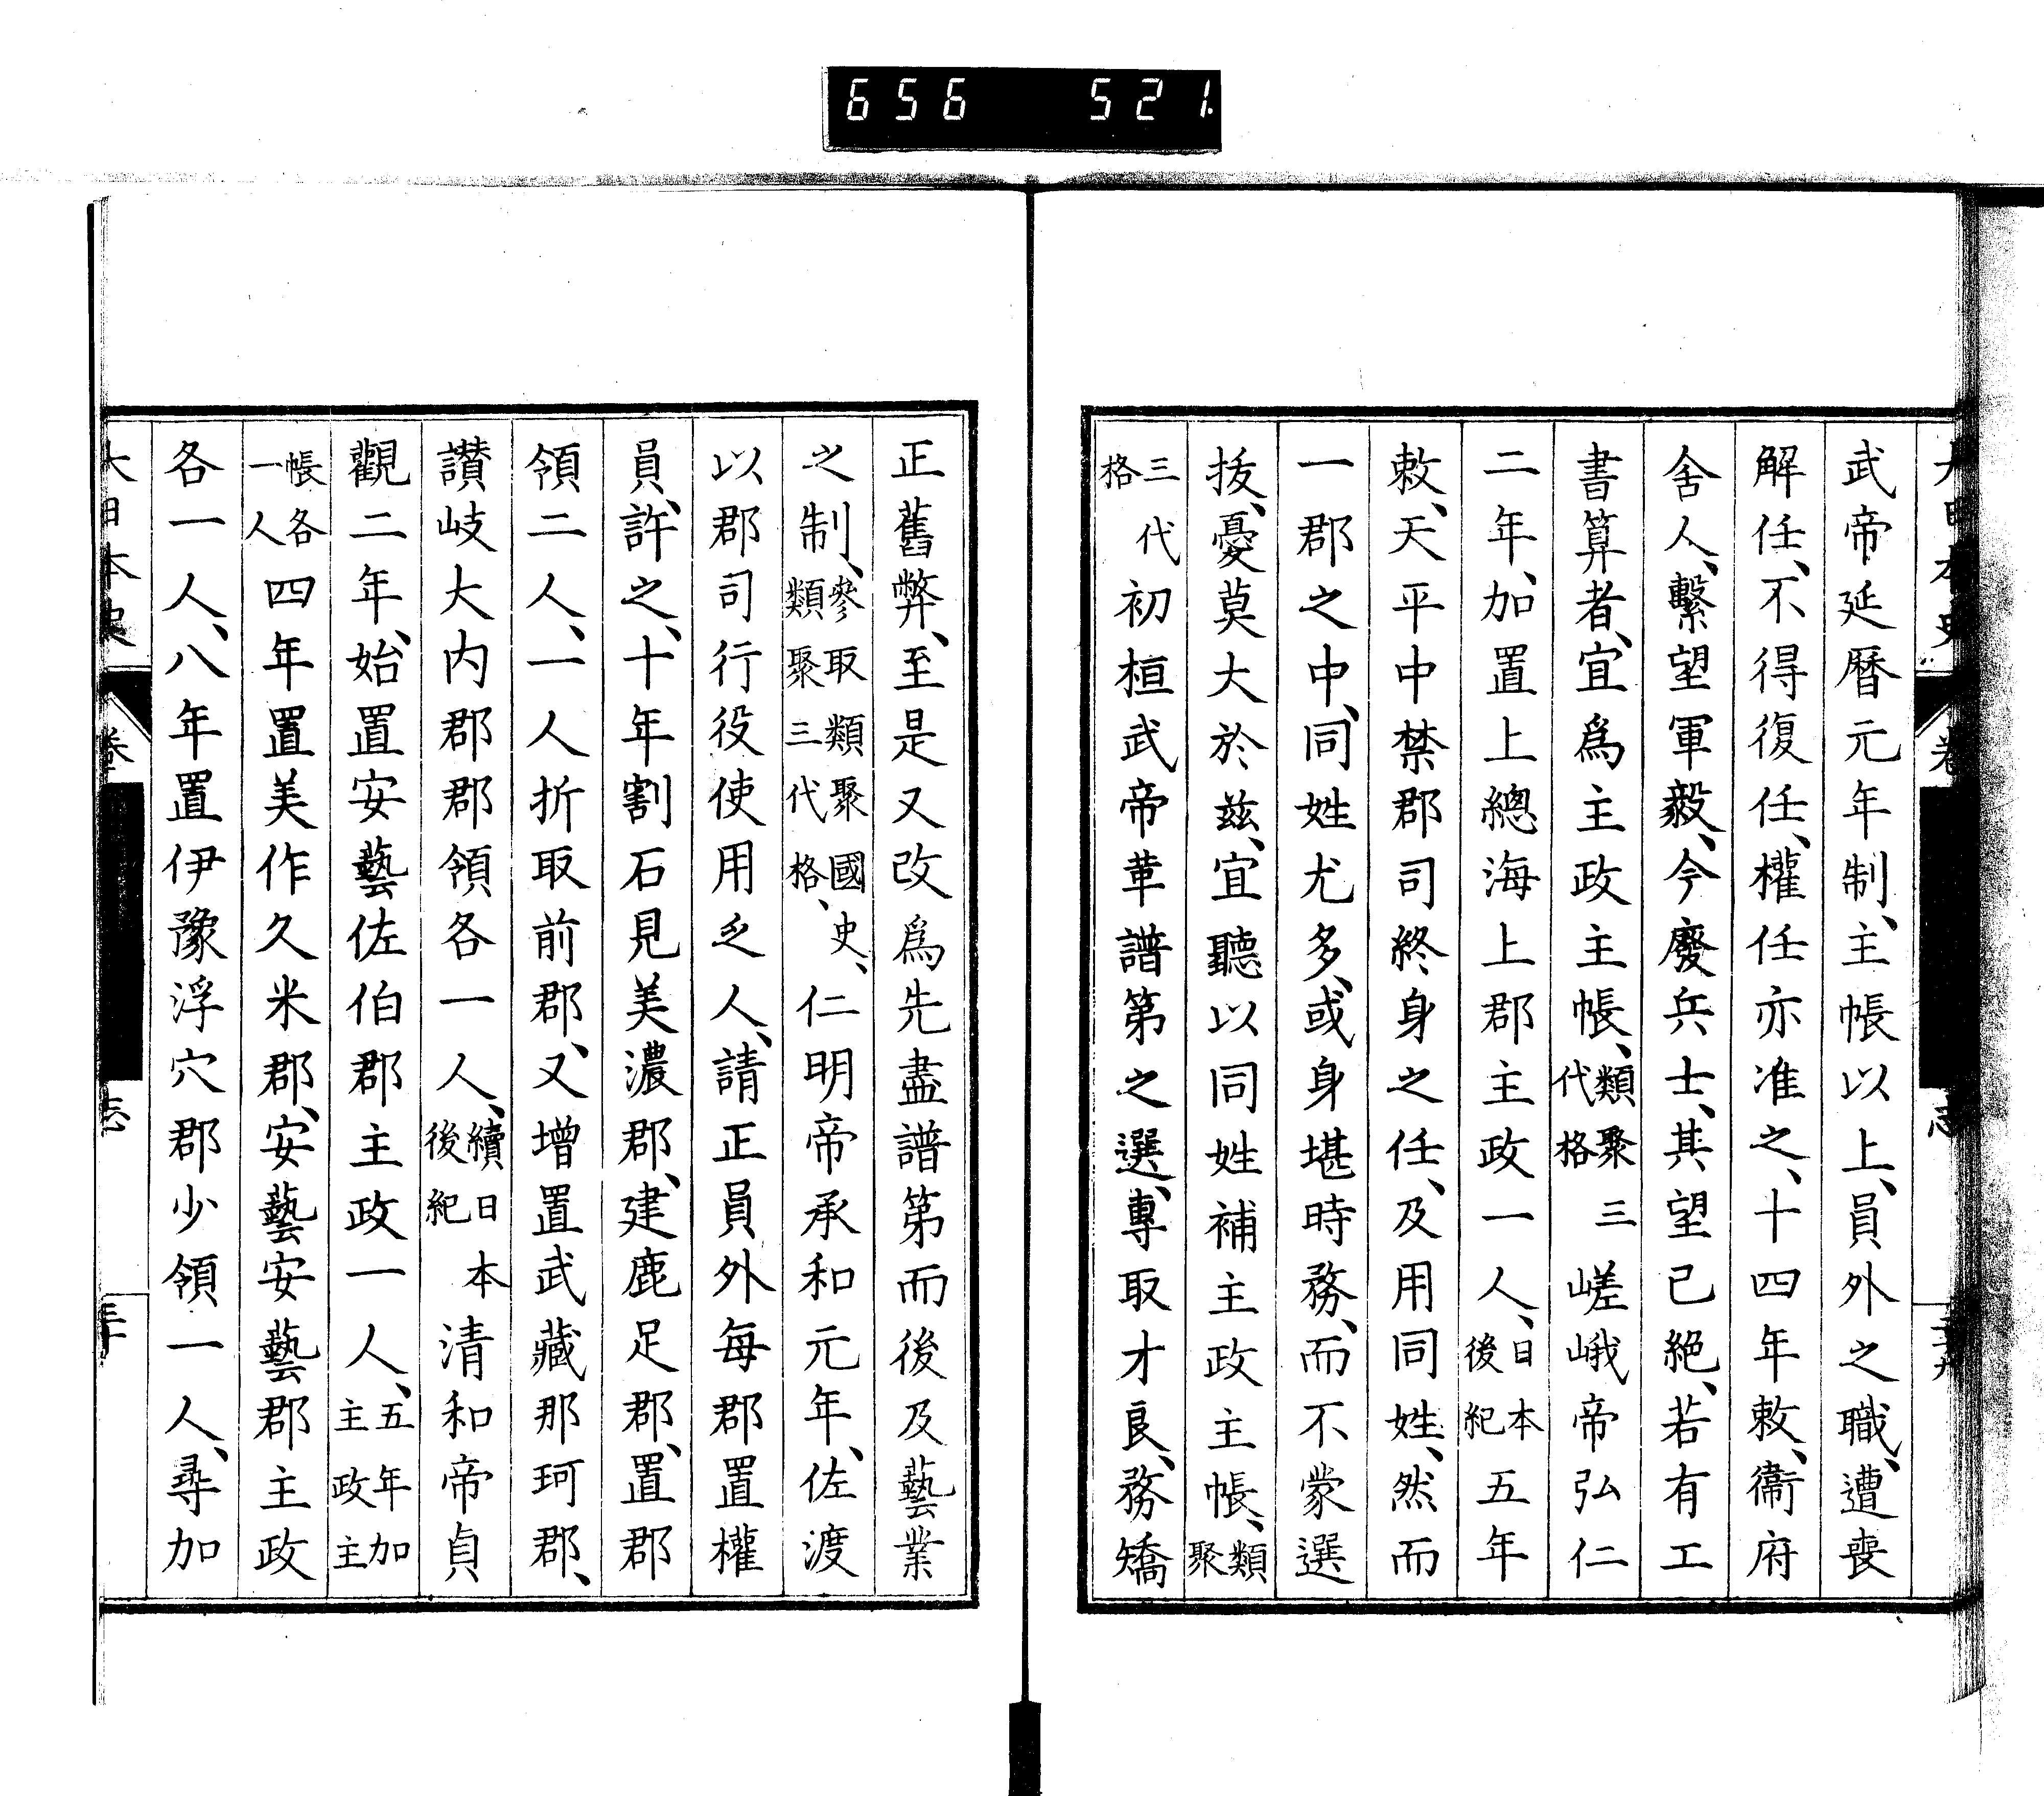 656 521
武帝延曆元年制、主帳以上、員外之職、遭喪
解任、不得復任、權任亦准之、十四年敕、衞府
舍人、繫望軍毅、今廢兵士、其望已絕、若有工
書算者、宜爲主政主帳、類聚三代格嵯峨帝弘仁
二年、加置上總海上郡主政一人、日本後紀五年
敕、天平中禁郡司終身之任、及用同姓、然而
一郡之中、同姓尤多、或身堪時務、而不蒙選
拔、憂莫大於茲、宜聽以同姓補主政主帳、類聚
三代格初桓武帝革譜第之選、專取才良、務矯
正舊弊、至是又改爲先盡譜第而後及藝業
之制、參取類聚國史、類聚三代格、仁明帝承和元年、佐渡
以郡司行役使用乏人、請正員外每郡置權
員、許之、十年割石見美濃郡、建鹿足郡、置郡
領二人、一人折取前郡、又增置武藏那珂郡、
讃岐大內郡郡領各一人、續日本後紀清和帝貞
觀二年、始置安藝佐伯郡主政一人、五年加主政主
帳各一人四年置美作久米郡、安藝安藝郡主政
各一人、八年置伊豫浮穴郡少領一人、尋加
大日本史 卷 志 三十